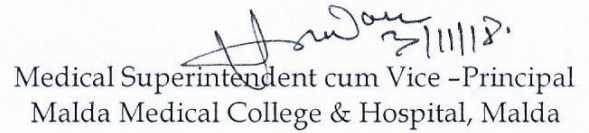 3/11/18.
Medical Superintendent cum Vice –Principal
Malda Medical College & Hospital, Malda